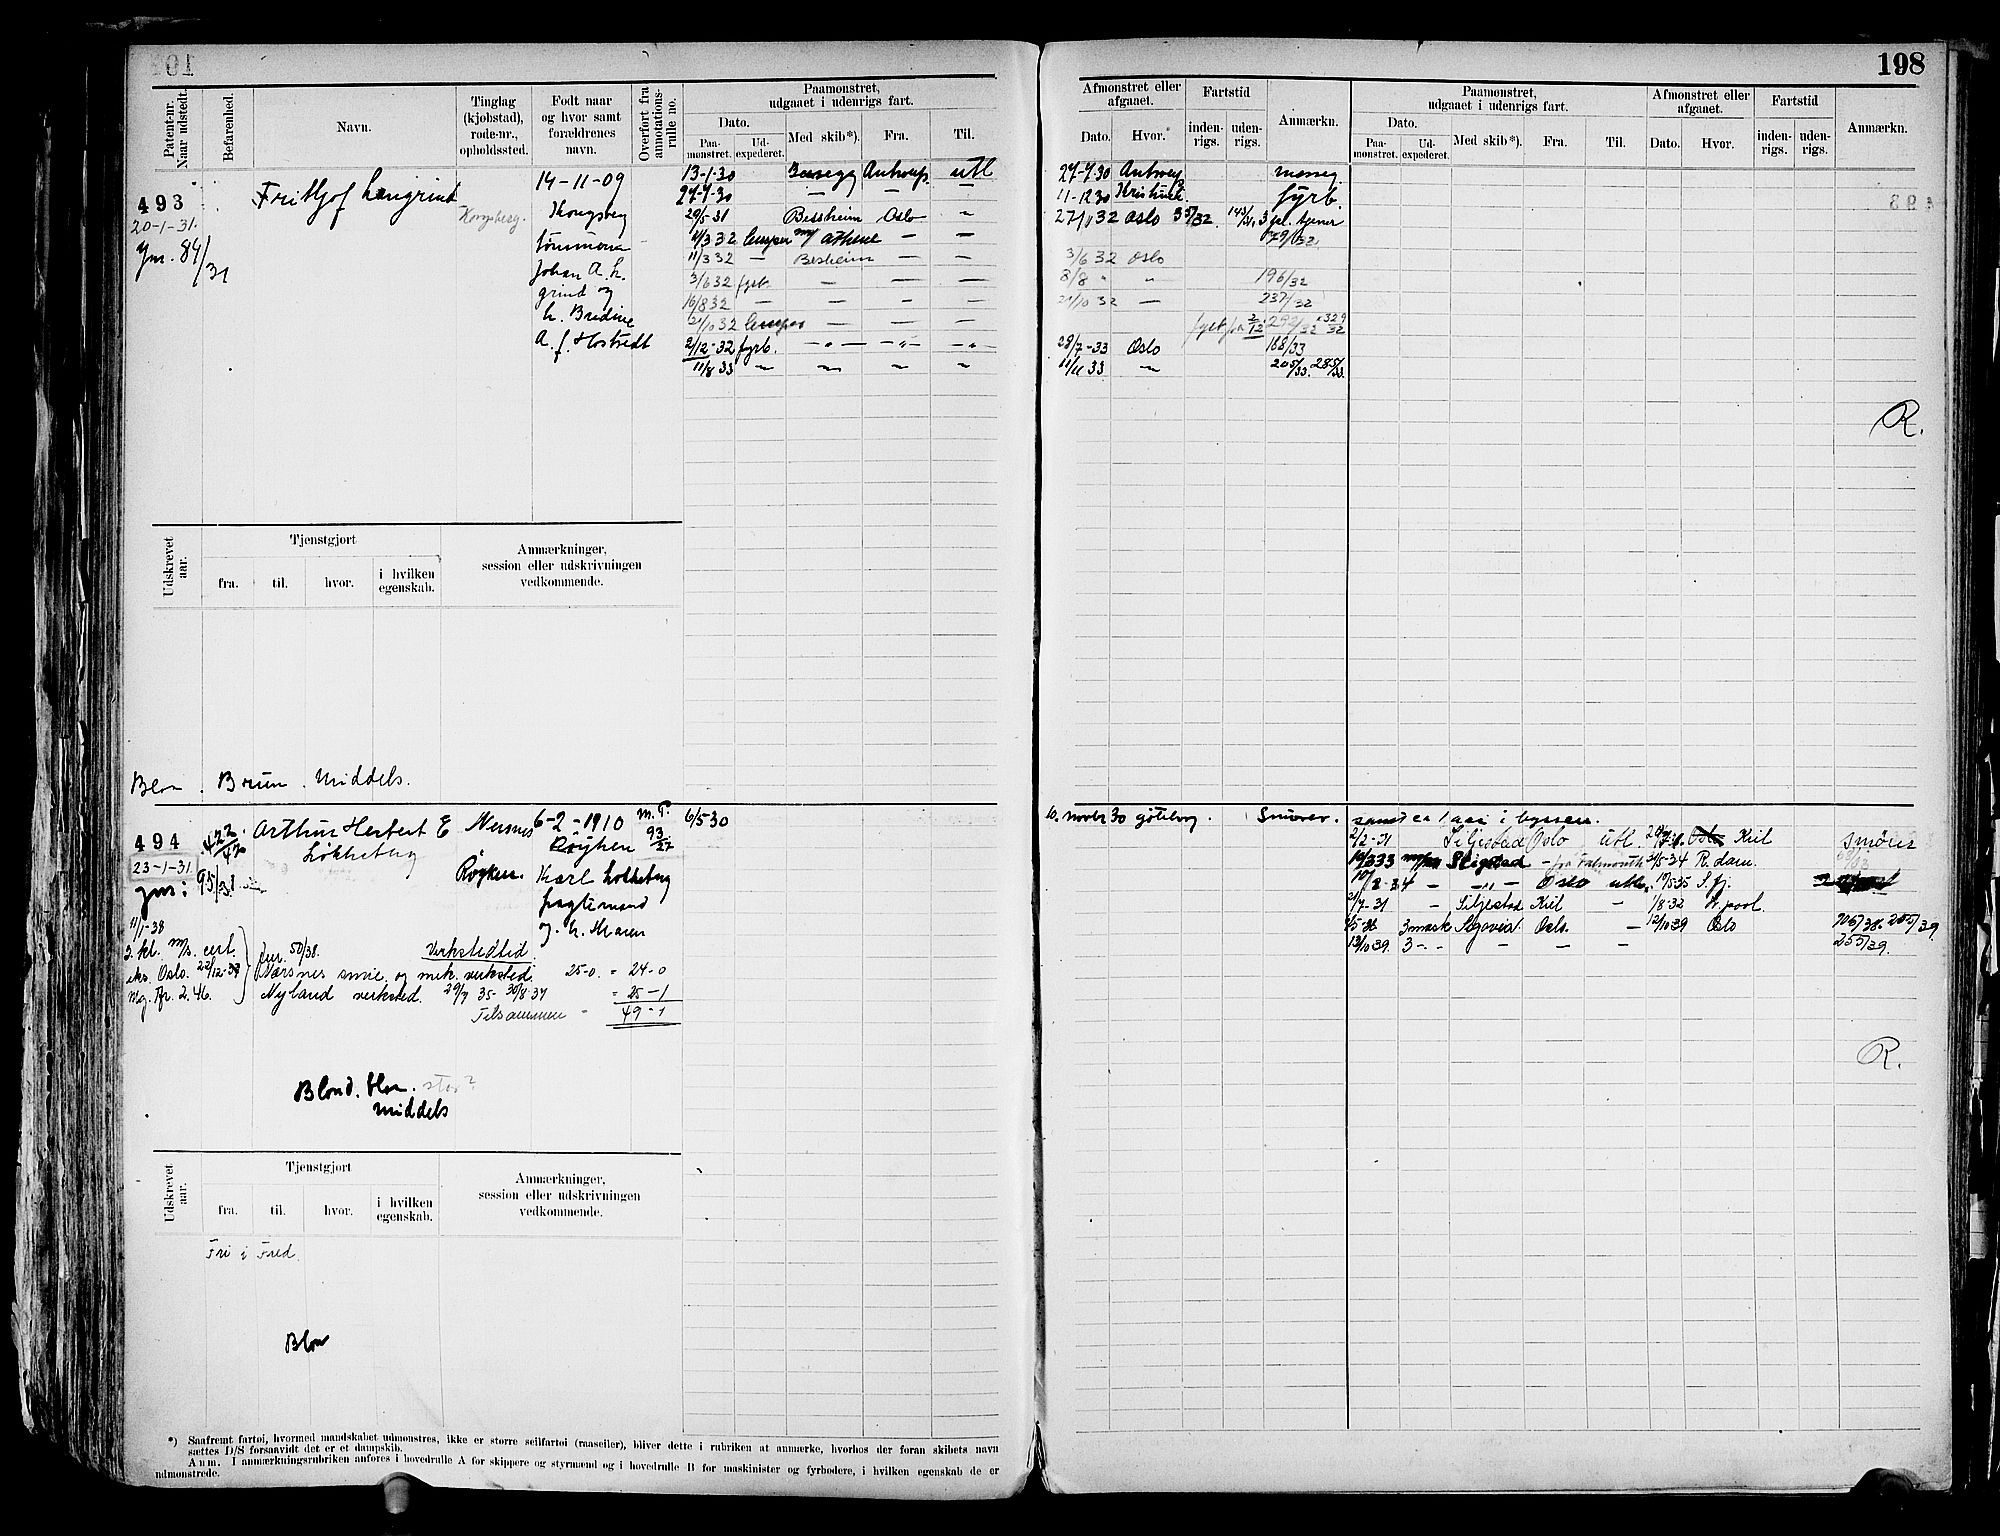 198
Patent-nr. Naar udstedt.
Befarenhed.
Navn.
Tinglag (kjøbstad), rode-nr., opholdssted.
Født naar og hvor samt forældrenes navn.
Overført fra annotations-rulle no.
Paamonstret, udgaaet i udenrigs fart.
Dato.
Paa-monstret.
Ud-expederet.
Med skib*).
Fra.
Til.
Afmonstret eller afgaaet.
Dato.
Hvor.
Fartstid
inden-rigs.
uden-rigs.
Anmærkn.
Paamonstret, udgaaet i udenrigs fart.
Dato.
Paa-monstret.
Ud-expederet.
Med skib*).
Fra.
Til.
Afmonstret eller afgaaet.
Dato.
Hvor.
Fartstid
inden-rigs.
uden-rigs.
Anmærkn.
493
20-1-31.
Jnr. 84/31
Frithjof Langrind
Kongsberg
14-11-09
Kongsberg
tømmerm
Johan A. L.
grind og
h. Bredine
A. f. Hostvedt
13-1-30 Antwerp. utl
27-7-30 — — —
29/5 31 Bessheim Oslo —
4/3 32 lemper m/s Athene — —
11/3 32 — Besheim — —
3/6 32 fyrb. — — —
16/8 32 — — — —
21/10 32 lemper — — —
2/12-32 fyrb. —„— —„— —„—
11/8 33 — — — —
27-7-30 Antwerp messeg.
11-12 30 fyrb.
27/1 32 Oslo
79/32
3/6 32 Oslo
8/8 „ „ 196/32
21/10 32 — 237/32
28/7-33 Oslo 168/33
11/11 33 — 205/33. 285/33.
R.
Udskrevet aar.
Tjenstgjort
fra.
til.
hvor.
i hvilken egenskab.
Anmærkninger, session eller udskrivningen vedkommende.
Blaa . Brun . Middels.
494
23-1-31
jnr: 95/31
422/47
Arthur Herbert E
Løkkeberg
Nersnes
Røyken.
6-2-1910
Røyken
Karl Løkkeberg
fragtemand
og h. Maren
M.T. 93/27
6/5 30
11/1-38
2. kl. m/s. cert.
Oslo. 22/12-37
Jnr. 50/38.
Verkstedtid.
Nærsnes smie og mek. verksted 25-0. = 24-0
Nyland verksted. 29/7 35- 30/8-37 = 25-1
Tilsammen - 49-1
Blond. blaa. stor?
Middels
10. novbr 30 Göteborg. Smører.
2/2-31 Siljestad Oslo utl. Kiel smører
— fra Falmouth 31/5-34 R.dam.
10/2-34 — —„— Oslo utl. 19/5 35
21/7-31 — Siljestad Kiel — 1/8-32
3 mask Segovia Oslo. — 12/10 39 Oslo 706/38. 205/39.
13/10 39. 3 - - — — — 255/39.
R.
Udskrevet aar.
Tjenstgjort
fra.
til.
hvor.
i hvilken egenskab.
Anmærkninger, session eller udskrivningen vedkommende.
Fri i Fred.
Blaa
*) Saafremt fartøi, hvormed mandskabet udmonstres, ikke er større seilfartøi (raaseiler), bliver dette i rubriken at anmærke, hvorhos der foran skibets navn
sættes D/S forsaavidt det er et dampskib.
Anm. I anmærkningsrubriken anføres i hovedrulle A for skippere og styrmænd og i hovedrulle B for maskinister og fyrbødere, i hvilken egenskab de er
udmonstrede.